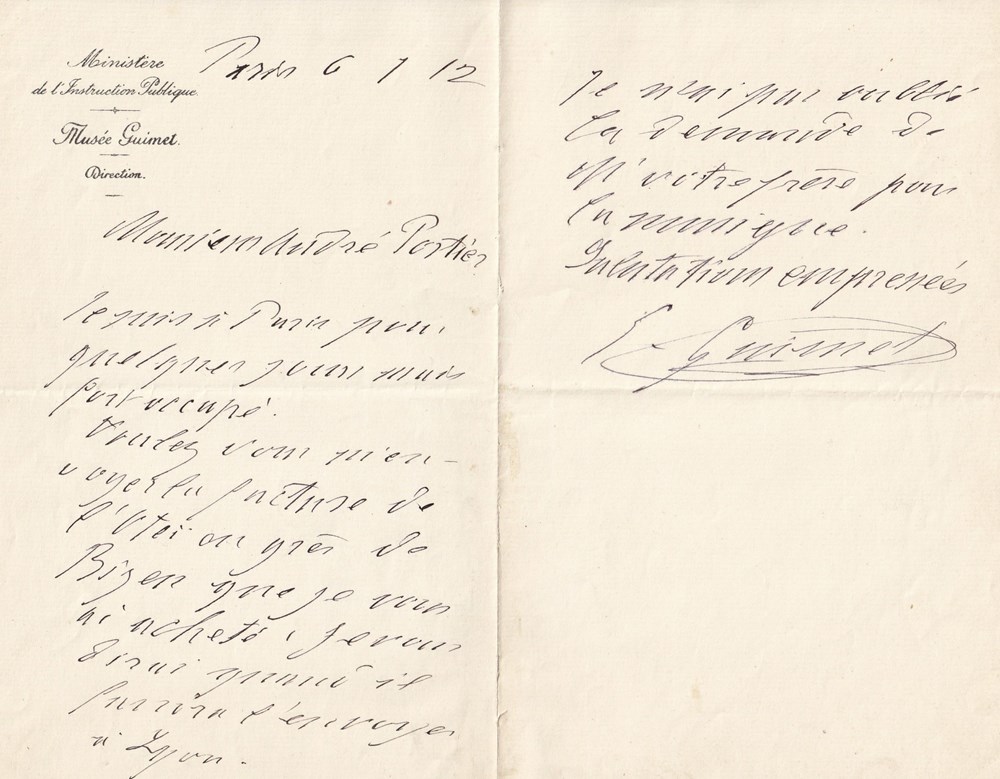 Ministère
de l'Instruction Publique.
Musée Guimet.
Direction.
Paris 6 7 12
Monsieur André Portier
Je suis à Paris pour
quelques jours mais
fort occupé.
Voulez vous m'en-
voyer la facture de
l'Hoteï en grès de
Bizen que je vous
ai acheté, je vous
dirai quand il
faudra l'envoyer
à Lyon.
Je n'ai pas oublié
la demande de
Mr votre frère pour
la musique.
Salutations empressées
E. Guimet